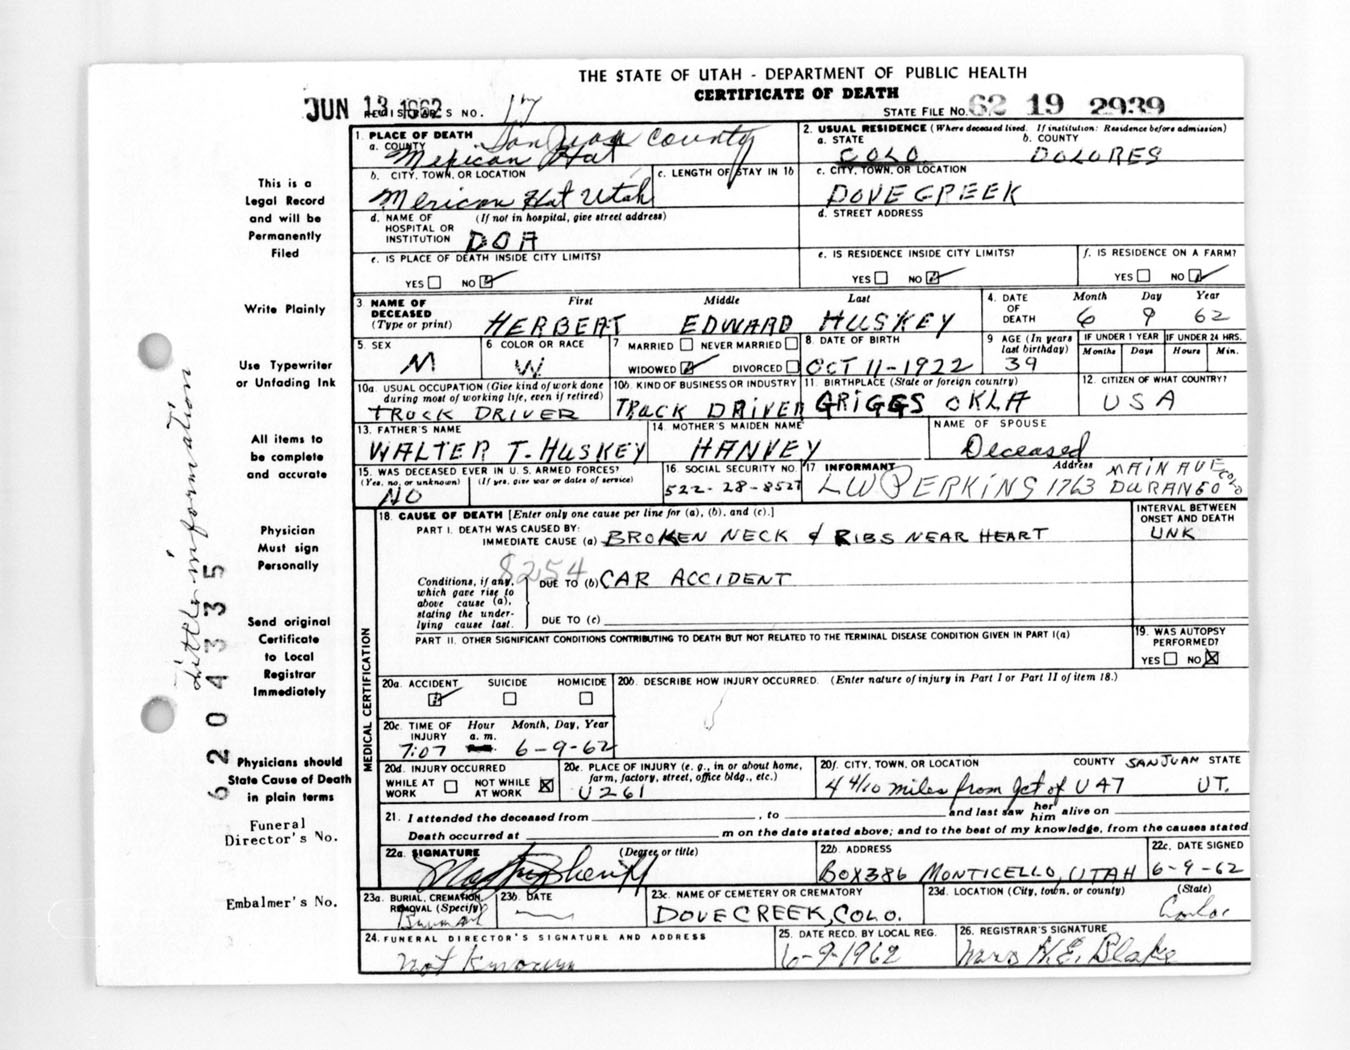 THE STATE OF UTAH - DEPARTMENT OF PUBLIC HEALTH
CERTIFICATE OF DEATH
JUN 13 1962 REGISTRAR'S NO. 17
STATE FILE NO. 62 19 2939
1. PLACE OF DEATH
a. COUNTY San Juan County
Mexican Hat
2. USUAL RESIDENCE (Where deceased lived. If institution: Residence before admission)
a. STATE COLO.
b. COUNTY DOLORES
b. CITY, TOWN, OR LOCATION
Mexican Hat Utah
c. LENGTH OF STAY IN 1b
c. CITY, TOWN, OR LOCATION
DOVE CREEK
d. NAME OF HOSPITAL OR INSTITUTION (If not in hospital, give street address)
DOA
d. STREET ADDRESS
e. IS PLACE OF DEATH INSIDE CITY LIMITS?
YES NO
e. IS RESIDENCE INSIDE CITY LIMITS?
YES NO
f. IS RESIDENCE ON A FARM?
YES NO
3 NAME OF DECEASED (Type or print)
First Middle Last
HERBERT EDWARD HUSKEY
4. DATE OF DEATH
Month Day Year
6 9 62
5. SEX
M
6 COLOR OR RACE
W
7 MARRIED NEVER MARRIED
WIDOWED DIVORCED
8. DATE OF BIRTH
OCT 11-1922
9 AGE (In years last birthday)
39
IF UNDER 1 YEAR
Months Days
IF UNDER 24 HRS.
Hours Min.
10a. USUAL OCCUPATION (Give kind of work done during most of working life, even if retired)
TRUCK DRIVER
10b. KIND OF BUSINESS OR INDUSTRY
TRUCK DRIVER
11. BIRTHPLACE (State or foreign country)
GRIGGS OKLA
12. CITIZEN OF WHAT COUNTRY?
USA
13. FATHER'S NAME
WALTER T. HUSKEY
14. MOTHER'S MAIDEN NAME
HANVEY
NAME OF SPOUSE
Deceased
15. WAS DECEASED EVER IN U. S. ARMED FORCES?
(Yes, no, or unknown) (If yes, give war or dates of service)
NO
16. SOCIAL SECURITY NO.
522-28-8527
17. INFORMANT Address
LW PERKINS 1763 MAIN AVE DURANGO COLO
18. CAUSE OF DEATH [Enter only one cause per line for (a), (b), and (c).]
PART I. DEATH WAS CAUSED BY:
IMMEDIATE CAUSE (a) BROKEN NECK & RIBS NEAR HEART
INTERVAL BETWEEN ONSET AND DEATH
UNK
8254
Conditions, if any, which gave rise to above cause (a), stating the underlying cause last.
DUE TO (b) CAR ACCIDENT
DUE TO (c)
PART II. OTHER SIGNIFICANT CONDITIONS CONTRIBUTING TO DEATH BUT NOT RELATED TO THE TERMINAL DISEASE CONDITION GIVEN IN PART I(a)
19. WAS AUTOPSY PERFORMED?
YES NO
20a. ACCIDENT SUICIDE HOMICIDE
20b. DESCRIBE HOW INJURY OCCURRED. (Enter nature of injury in Part I or Part II of item 18.)
20c. TIME OF INJURY Hour a. m. Month, Day, Year
7:07 6-9-62
20d. INJURY OCCURRED
WHILE AT WORK NOT WHILE AT WORK
20e. PLACE OF INJURY (e. g., in or about home, farm, factory, street, office bldg., etc.)
U261
20f. CITY, TOWN, OR LOCATION COUNTY SAN JUAN STATE
4 4/10 miles from Jct of U 47 UT.
21. I attended the deceased from , to and last saw her him alive on
Death occurred at m on the date stated above; and to the best of my knowledge, from the causes stated
22a. SIGNATURE (Degree or title)
Sheriff
22b. ADDRESS
BOX 386 MONTICELLO, UTAH
22c. DATE SIGNED
6-9-62
23a. BURIAL, CREMATION, REMOVAL (Specify)
23b. DATE
23c. NAME OF CEMETERY OR CREMATORY
DOVE CREEK, COLO.
23d. LOCATION (City, town, or county) (State)
24. FUNERAL DIRECTOR'S SIGNATURE AND ADDRESS
not Known
25. DATE RECD. BY LOCAL REG.
6-9-1962
26. REGISTRAR'S SIGNATURE
Mrs H. E. Blake
MEDICAL CERTIFICATION
This is a
Legal Record
and will be
Permanently
Filed
Write Plainly
Use Typewriter
or Unfading Ink
All items to
be complete
and accurate
Physician
Must sign
Personally
Send original
Certificate
to Local
Registrar
Immediately
Physicians should
State Cause of Death
in plain terms
Funeral
Director's No.
Embalmer's No.
Little information
6204335